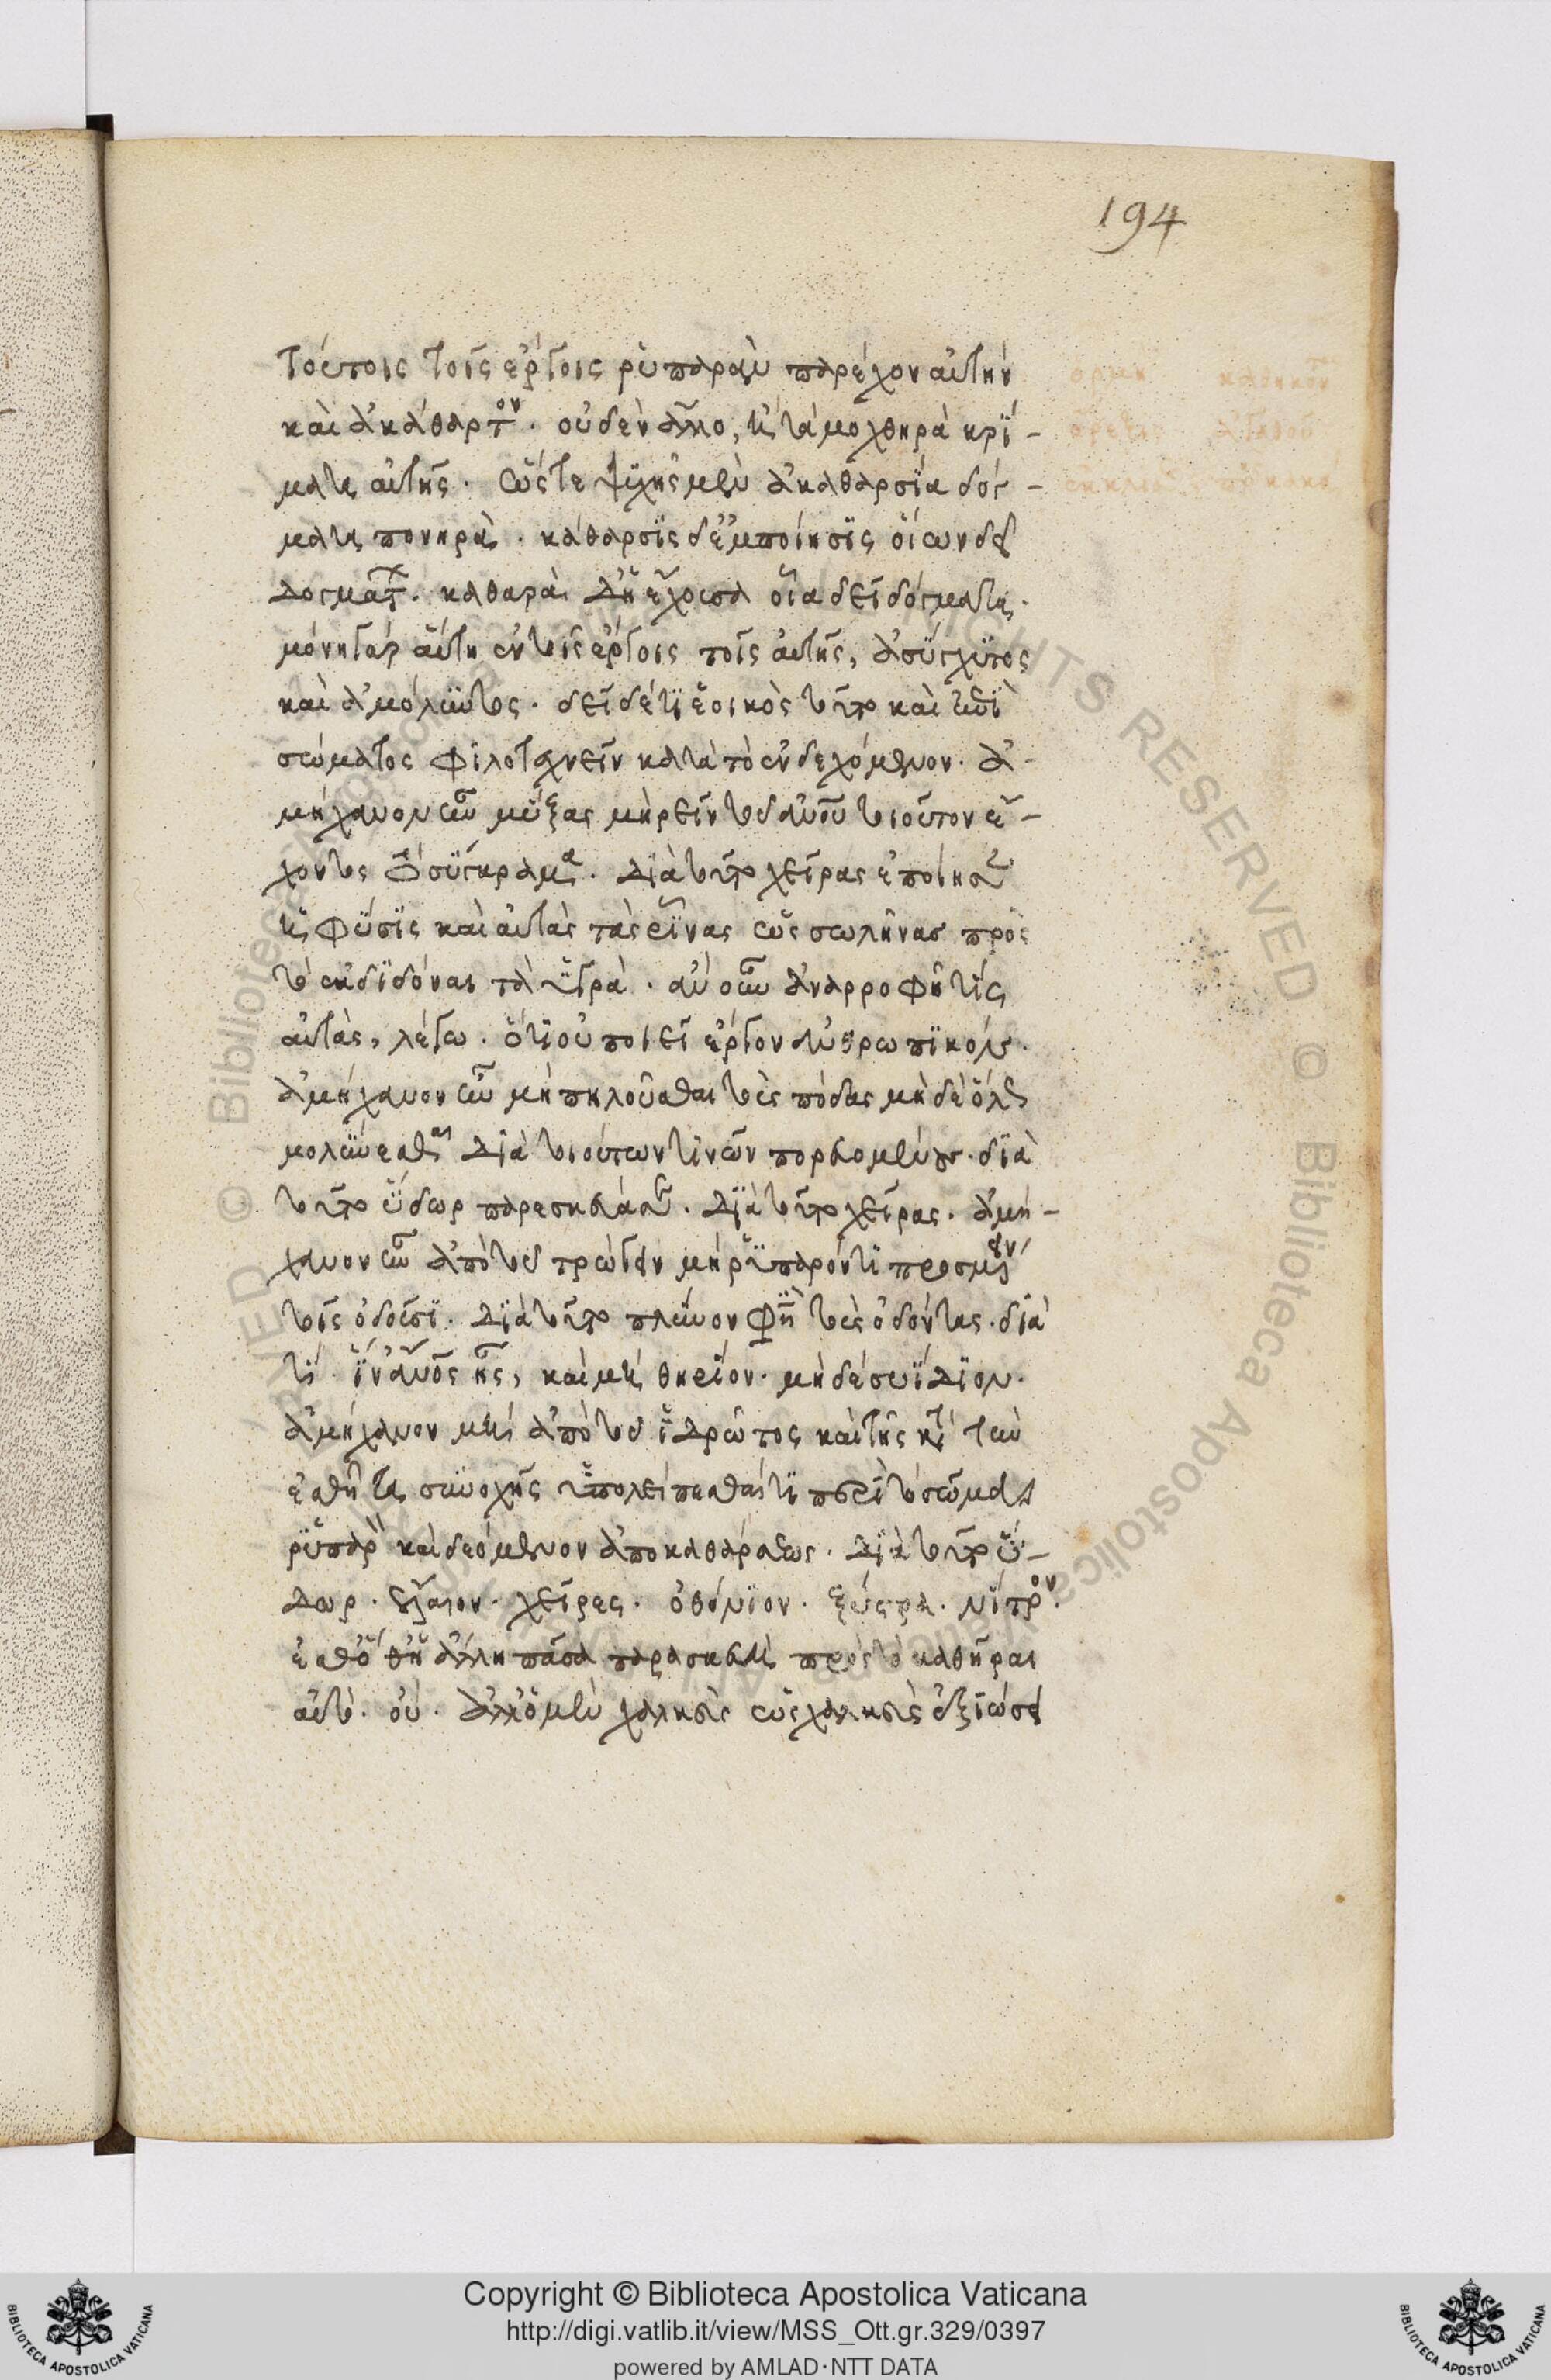 194
τούτοις τοῖς ἔργοις ῥυπαρὰν παρέχον αὐτὴν
καὶ ἀκάθαρτον. οὐδὲν ἄλλο, ἢ τὰ μοχθηρὰ κρί-
ματα αὐτῆς. ὥστε ψυχῆς μὲν ἀκαθαρσία δόγ-
ματα πονηρά. κάθαρσις δ' ἐμποίησις οἵων δεῖ
δογμάτων. καθαρὰ δ' ἡ ἔχουσα οἷα δεῖ δόγματα.
μόνη γὰρ αὕτη ἐν τοῖς ἔργοις τοῖς αὐτῆς, ἀσύγχυτος
καὶ ἀμόλυντος. δεῖ δέ τι ἐοικὸς τούτῳ καὶ ἐπὶ
σώματος φιλοτεχνεῖν κατὰ τὸ ἐνδεχόμενον. ἀ-
μήχανον ἦν μύξας μὴ ῥεῖν τοῦ ἀνθρώπου τοιοῦτον ἔ-
χοντος τὸ σύγκραμα. διὰ τοῦτο χεῖρας ἐποίησεν
ἡ φύσις καὶ αὐτὰς τὰς ῥῖνας ὡς σωλῆνας πρὸς
τὸ ἐκδιδόναι τὰ ὑγρά. ἂν οὖν ἀναρροφῇ τις
αὐτάς, λέγω. ὅτι οὐ ποιεῖ ἔργον ἀνθρωπικόν.
ἀμήχανον ἦν μὴ πηλοῦσθαι τοὺς πόδας μηδὲ ὅλως
μολύνεσθαι διὰ τοιούτων τινῶν πορευομένους. διὰ
τοῦτο ὕδωρ παρεσκεύασεν. διὰ τοῦτο χεῖρας. ἀμή-
χανον ἦν ἀπὸ τοῦ τρώγειν μὴ ῥυπαρόν τι προσμένειν
τοῖς ὀδοῦσι. διὰ τοῦτο πλῦνον φησὶ τοὺς ὀδόντας. διὰ
τί. ἵν' ἄνθρωπος ᾖς, καὶ μὴ θηρίον. μηδὲ συΐδιον.
ἀμήχανον μὴ ἀπὸ τοῦ ἱδρῶτος καὶ τῆς κατὰ τὴν
ἐσθῆτα συνοχῆς ὑπολείπεσθαί τι περὶ τὸ σῶμα
ῥυπαρὸν καὶ δεόμενον ἀποκαθάρσεως. διὰ τοῦτο ὕ-
δωρ. ἔλαιον. χεῖρες. ὀθόνιον. ξύστρα. νίτρον.
ἔσθ' ὅθ' ἡ ἄλλη πᾶσα παρασκευὴ πρὸς τὸ καθῆραι
αὐτό. οὔ. ἀλλ' ὁ μὲν χαλκεὺς
Copyright © Biblioteca Apostolica Vaticana
http://digi.vatlib.it/view/MSS_Ott.gr.329/0397
powered by AMLAD·NTT DATA